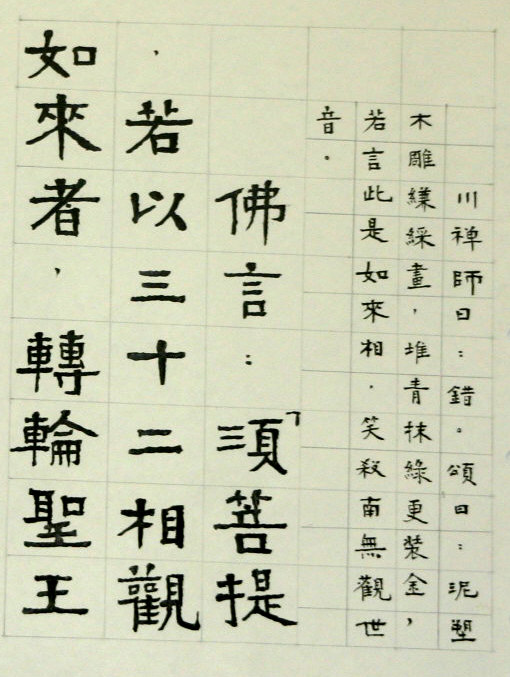 川禅師曰：錯。頌曰：泥塑
木雕縑綵畫，堆青抹綠更裝金，
若言此是如來相．笑殺南無觀世
音．
佛言：「須菩提
，若以三十二相觀
如來者，轉輪聖王